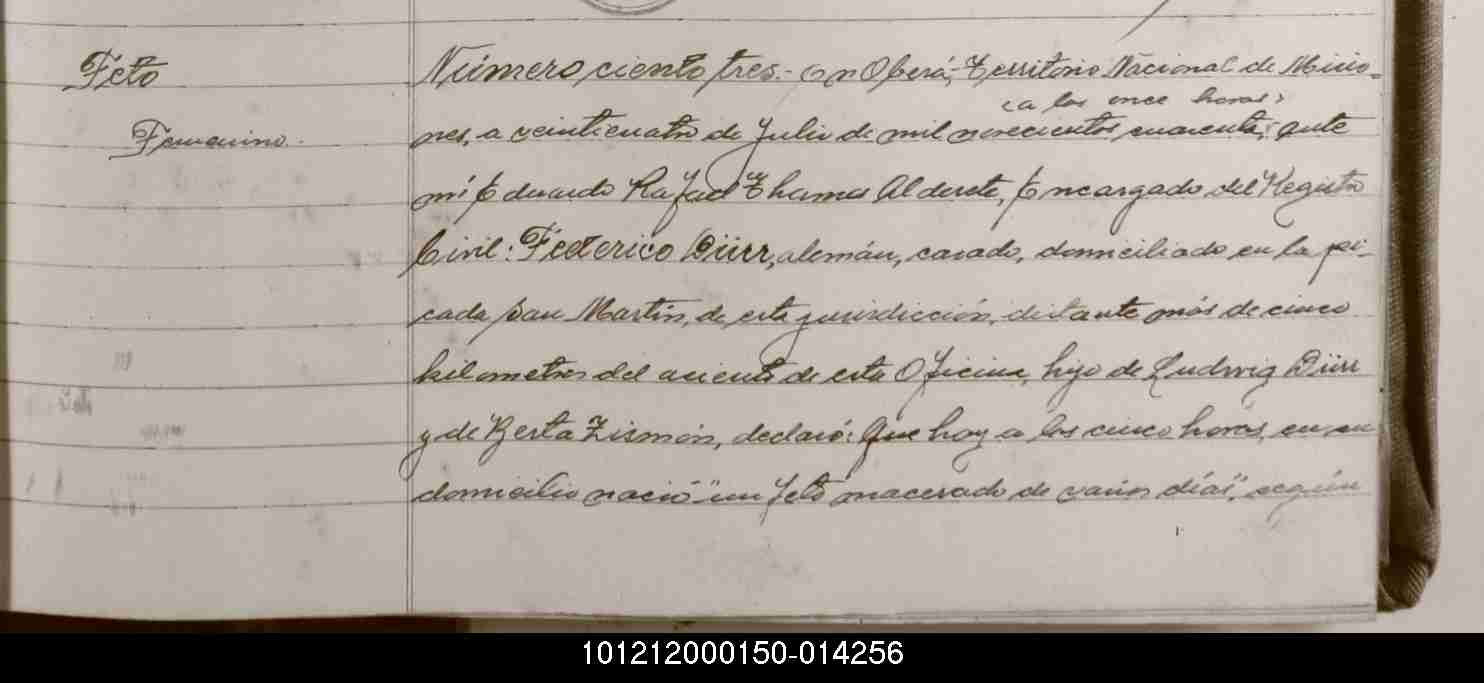 Feto
Femenino.
Número ciento tres.- En Oberá, Territorio Nacional de Misio-
(a las once horas)
nes, a veinticuatro de Julio de mil novecientos cuarenta, ante
mí Eduardo Rafael Thames Alderete, Encargado del Registro
Civil: Federico Dürr, alemán, casado, domiciliado en la pi-
cada San Martín, de esta jurisdicción, distante más de cinco
kilometros del asiento de esta Oficina, hijo de Ludwig Dürr
y de Berta Zismón, declaró: Que hoy a las cinco horas, en su
domicilio nació "un feto macerado de varios días", según
101212000150-014256